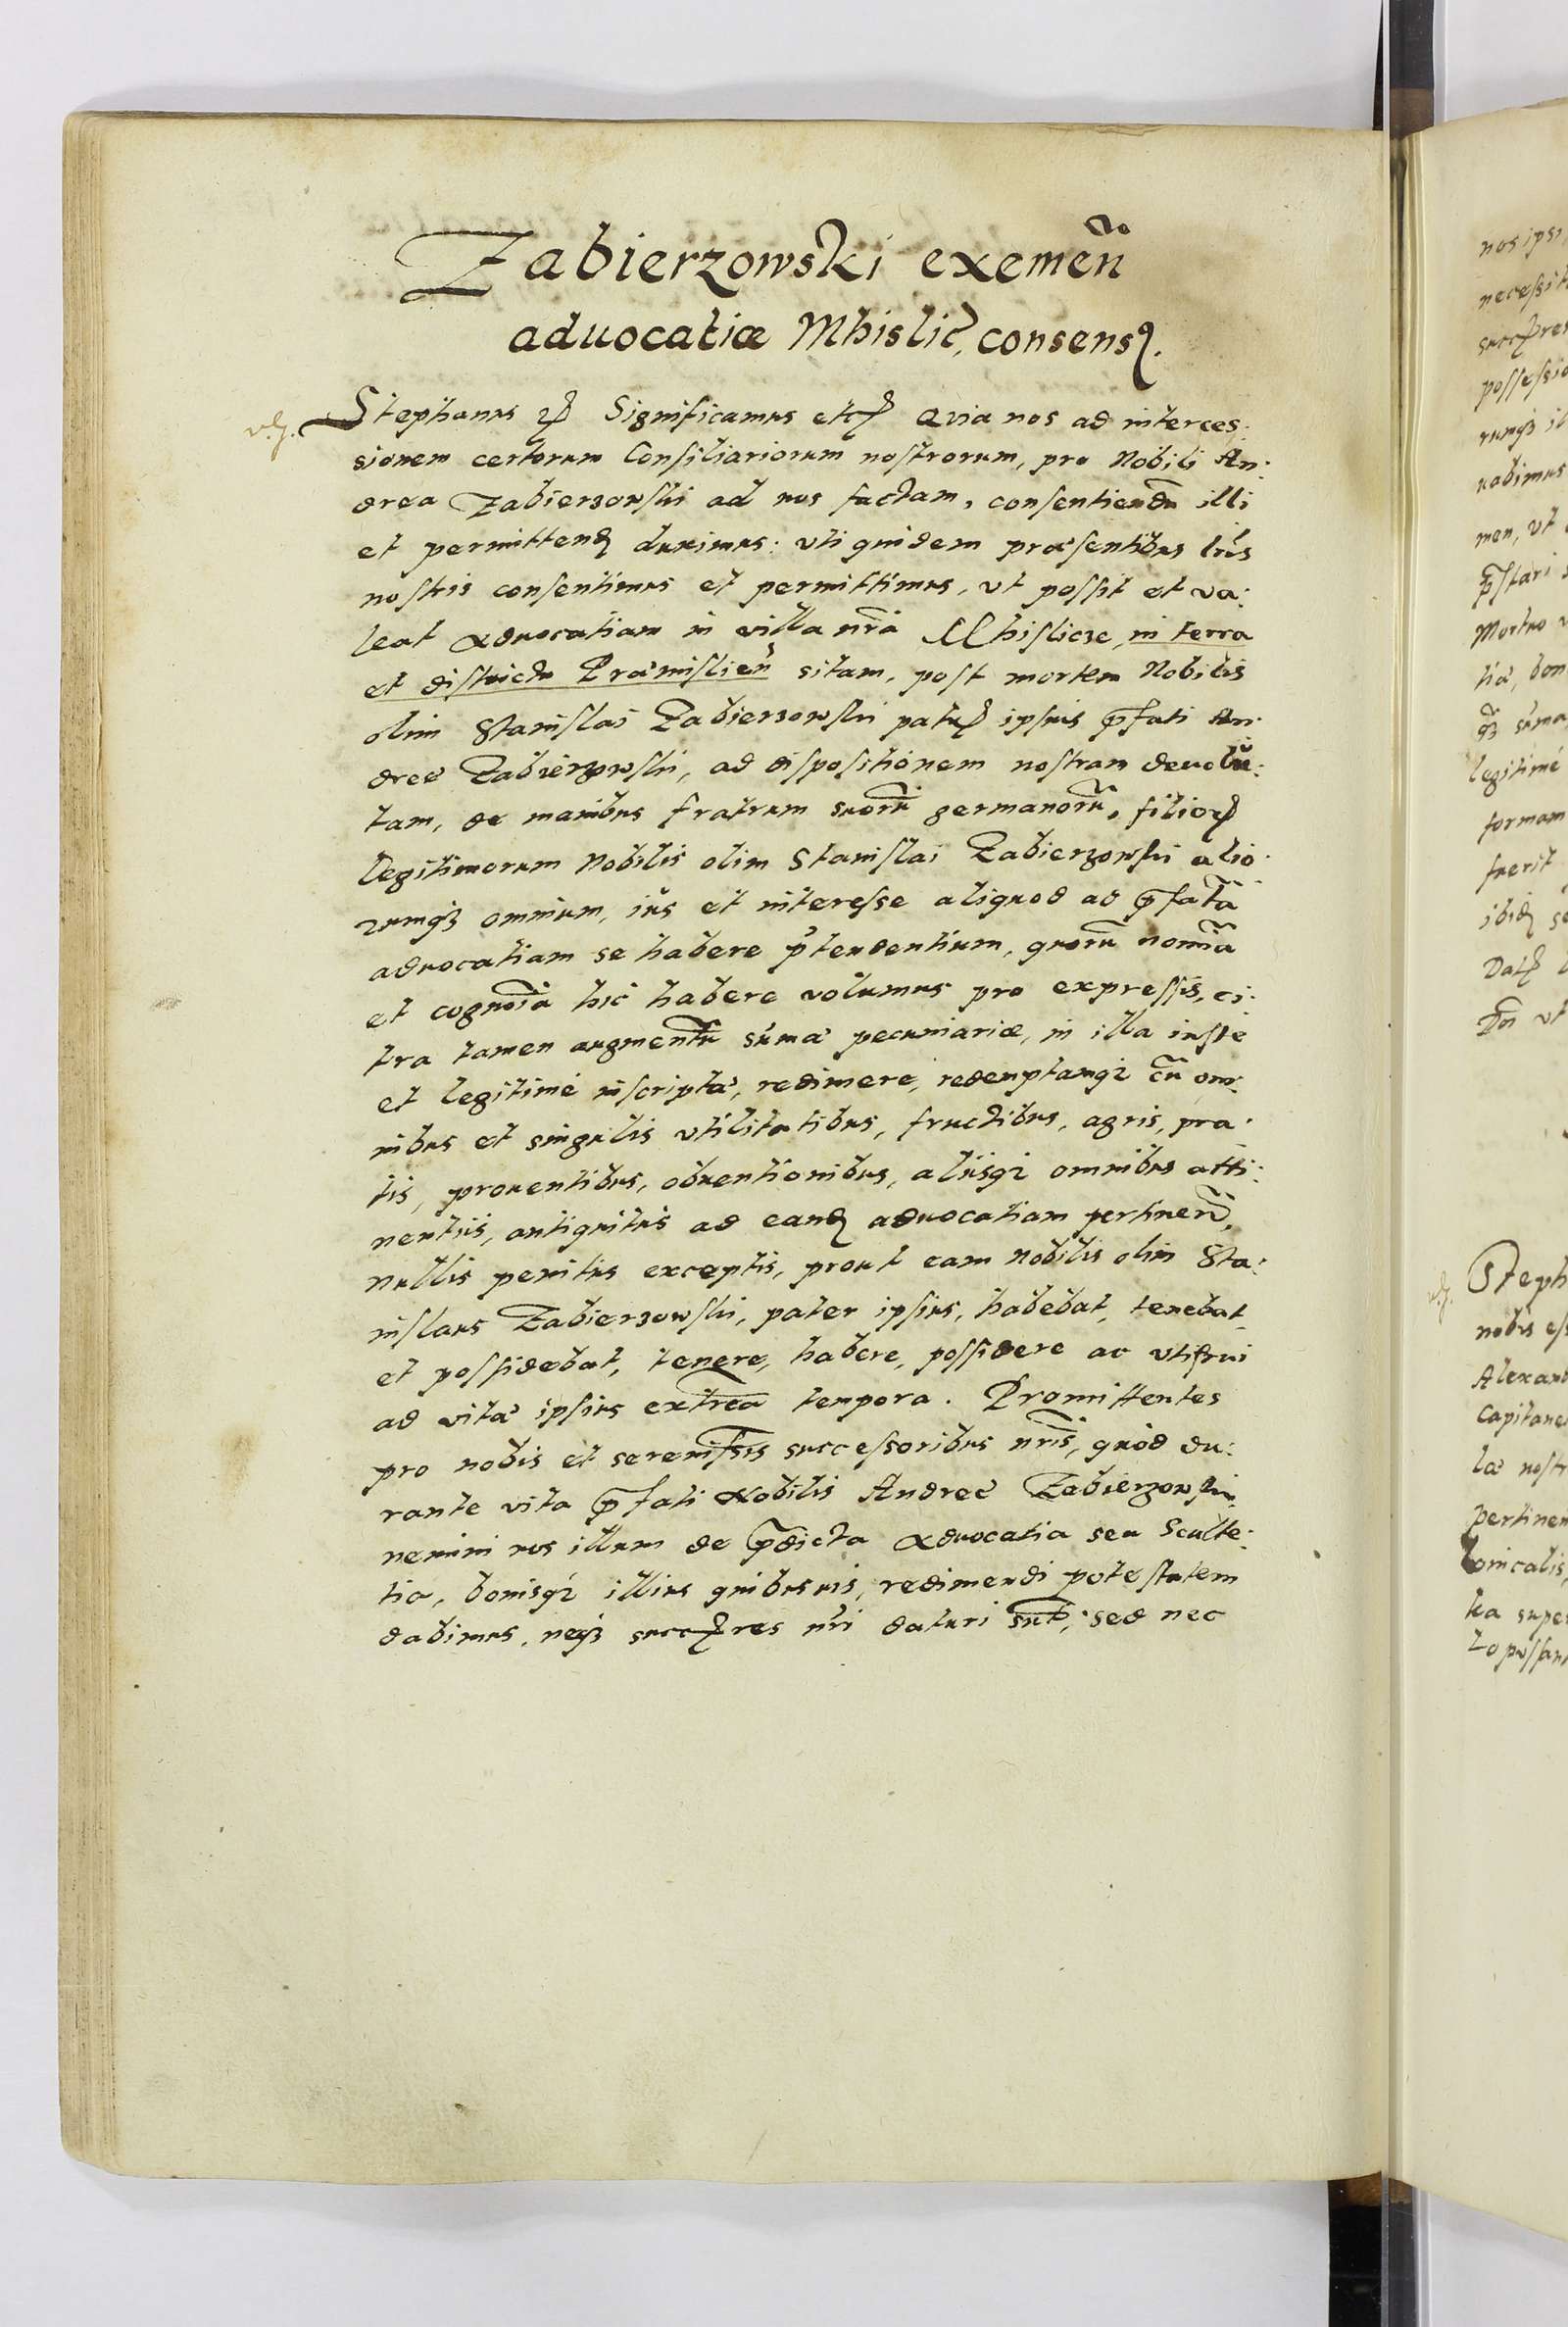 Zabierzowski exemeñ
aduocatiæ Mhislic̃, consensꝯ.
Stephanus ꝛc̃ Significamus etcꝭ Quia nos ad interces:
sionem certorum Consiliariorum nostrorum, pro Nobili An:
drea Zabierzowski ad nos factam, consentiendũ illi
et permittendꝭ duximus: vti quidem præsentibus lr̃is
nostris consentimus et permittimus, vt possit et va:
leat Aduocatiam in villa nr̃a Mhislicze, in terra
et districtu Præmislieñ sitam, post mortem Nobilis
olim Stanislai Zabierzowski patrꝭ ipsius p̃fati An:
dreæ Zabierzowski, ad dispositionem nostram deuolu:
tam, de manibus fratrum suorũ germanorũ, filioꝝ
legitimorum Nobilis olim Stanislai Zabierzowski alio:
rumqꝫ omnium, ius et interesse aliquod ad p̃fatã
aduocatiam se habere p̃tendentium, quorũ nomĩa
et cognoĩa hic habere volumus pro expressis, ci:
tra tamen augmentũ sũmæ pecuniariæ, in illa iuste
et legitimè inscriptæ, redimere, redemptamqꝫ cũ om:
nibus et singulis vtilitatibus, fructibus, agris, pra:
tis, prouentibus, obuentionibus, alijsqꝫ omnibus atti:
nentijs, antiquitus ad eandꝭ aduocatiam pertineñ,
nullis penitus exceptis, prout eam Nobilis olim Sta:
nislaus Zabierzowski, pater ipsius, habebat, tenebat
et possidebat, tenere, habere, possidere ac vtifrui
ad vitæ ipsius extrea tempora. Promittentes
pro nobis et serenissĩs successoribus nr̃is, quòd du:
rante vita p̃fati Nobilis Andreæ Zabierzowski,
nemini nos illum de p̃dicta Aduocatia seu Sculte:
tia, bonisqꝫ illius quibusuis, redimendi potestatem
dabimus, neqꝫ succꝭres nr̃i daturi sũt, sed nec
nos ipsi
possessio
rumqꝫ il
uabimus
men, vt
Mortuo
legitimè
formam
fuerit
Steph
nobis
Alexan
Capitane
læ nostr
pertinen